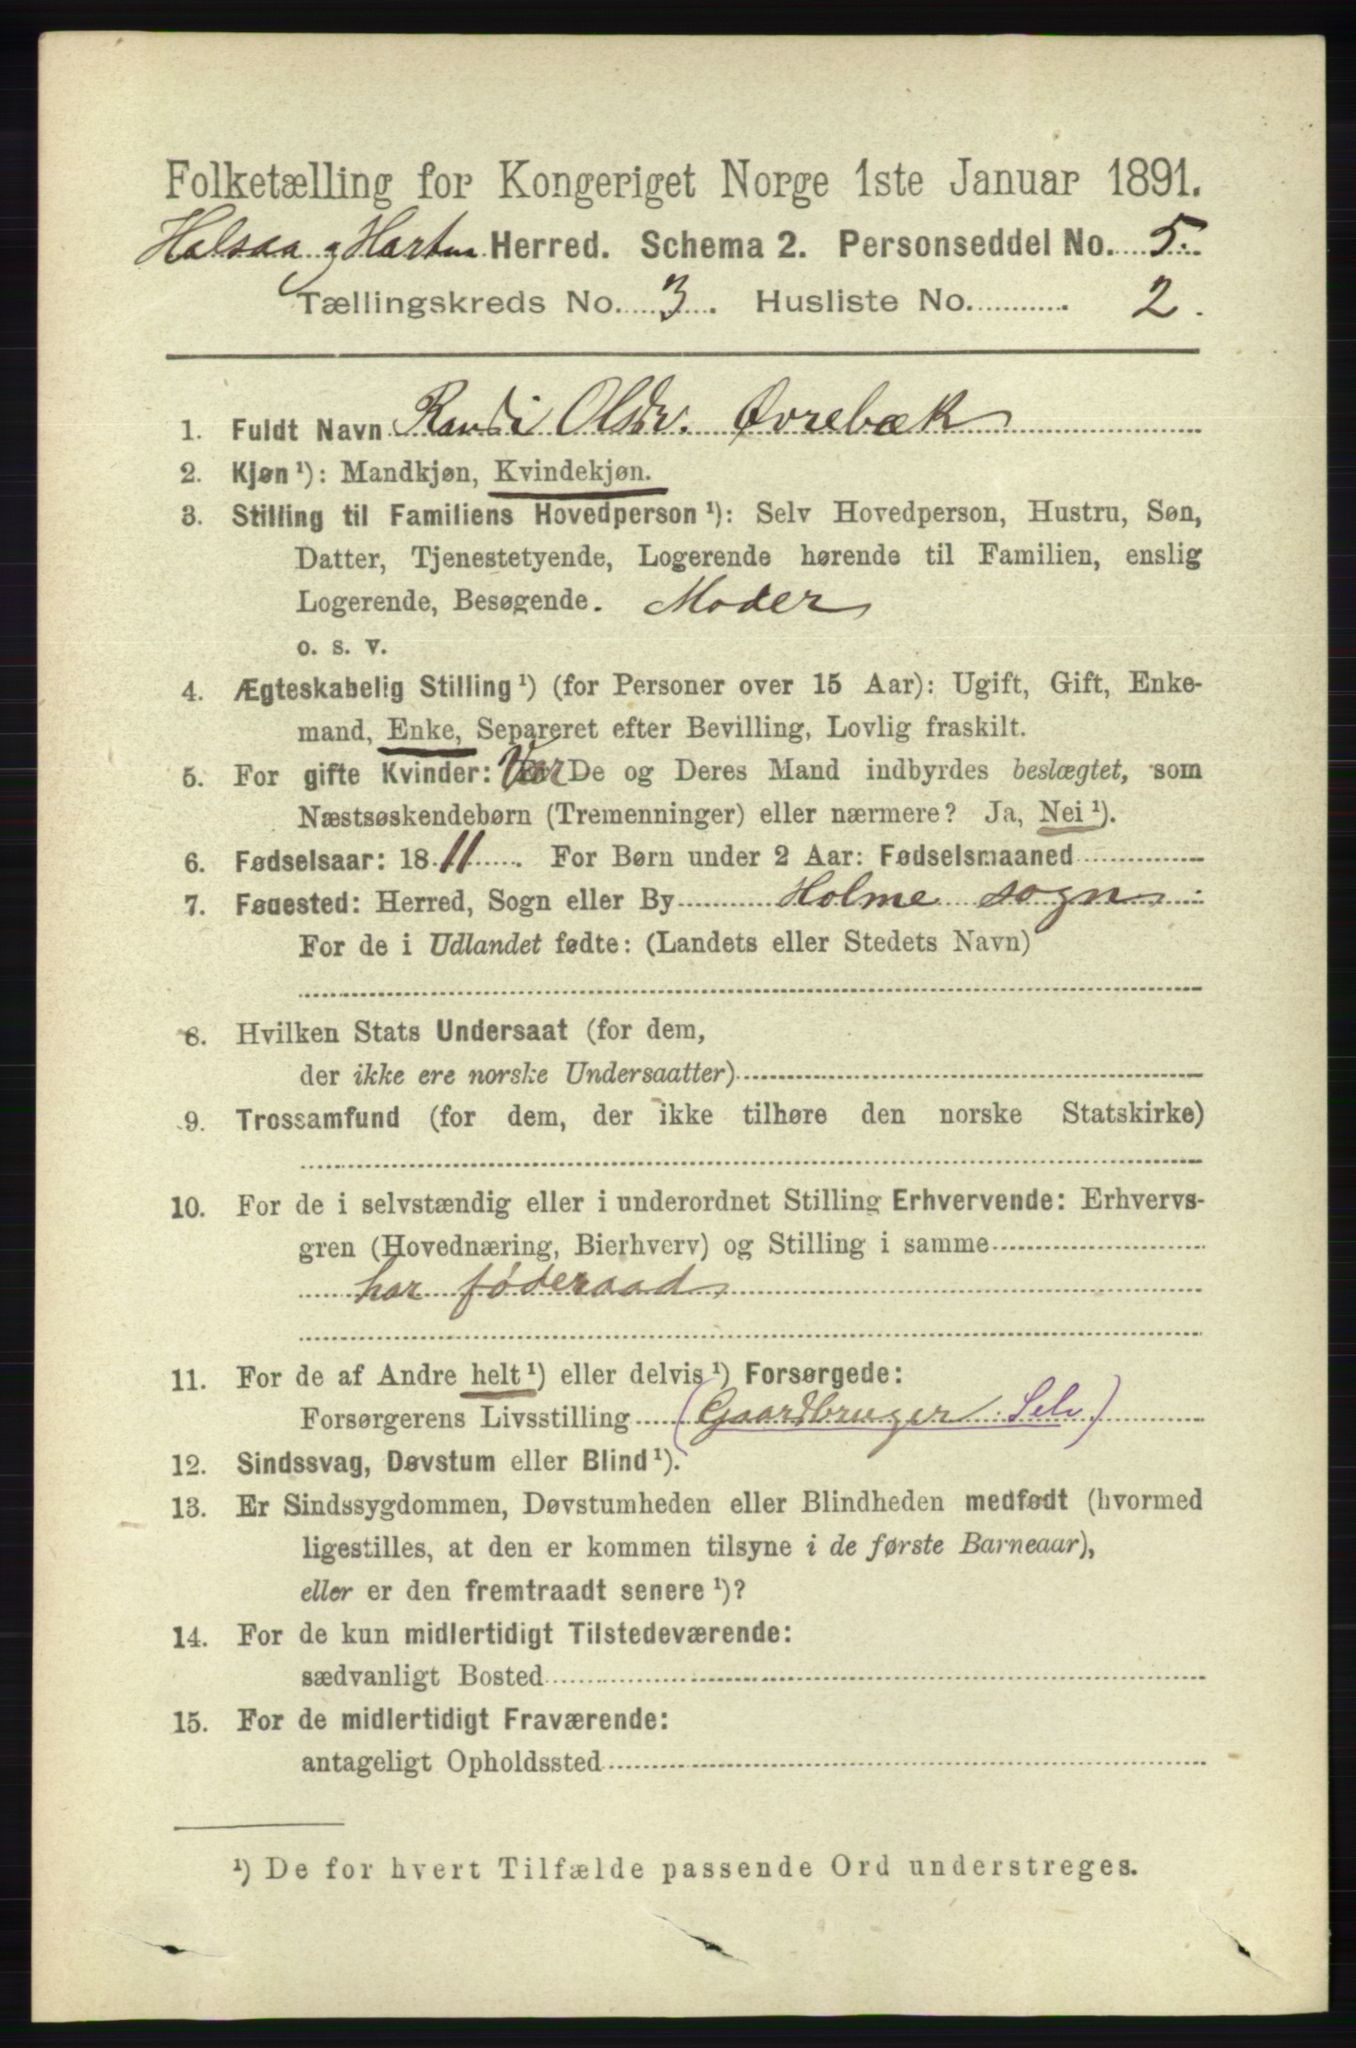 Folketælling for Kongeriget Norge 1ste Januar 1891.
Halsaa og Hartm Herred. Schema 2. Personseddel No. 5.
Tællingskreds No. 3. Husliste No. 2.
1. Fuldt Navn Randi Olsdr. Øvrebæk
2. Kjøn ¹): Mandkjøn, Kvindekjøn.
3. Stilling til Familiens Hovedperson ¹): Selv Hovedperson, Hustru, Søn,
Datter, Tjenestetyende, Logerende hørende til Familien, enslig
Logerende, Besøgende. Moder
o. s. v.
4. Ægteskabelig Stilling ¹) (for Personer over 15 Aar): Ugift, Gift, Enke-
mand, Enke, Separeret efter Bevilling, Lovlig fraskilt.
5. For gifte Kvinder: Var De og Deres Mand indbyrdes beslægtet, som
Næstsøskendebørn (Tremenninger) eller nærmere? Ja, Nei ¹).
6. Fødselsaar: 1811. For Børn under 2 Aar: Fødselsmaaned
7. Fødested: Herred, Sogn eller By Holme sogn
For de i Udlandet fødte: (Landets eller Stedets Navn)
8. Hvilken Stats Undersaat (for dem,
der ikke ere norske Undersaatter)
9. Trossamfund (for dem, der ikke tilhøre den norske Statskirke)
10. For de i selvstændig eller i underordnet Stilling Erhvervende: Erhvervs-
gren (Hovednæring, Bierhverv) og Stilling i samme
har føderaad
11. For de af Andre helt ¹) eller delvis ¹) Forsørgede:
Forsørgerens Livsstilling (Gaardbruger Selv)
12. Sindssvag, Døvstum eller Blind ¹).
13. Er Sindssygdommen, Døvstumheden eller Blindheden medfødt (hvormed
ligestilles, at den er kommen tilsyne i de første Barneaar),
eller er den fremtraadt senere ¹)?
14. For de kun midlertidigt Tilstedeværende:
sædvanligt Bosted
15. For de midlertidigt Fraværende:
antageligt Opholdssted
¹) De for hvert Tilfælde passende Ord understreges.